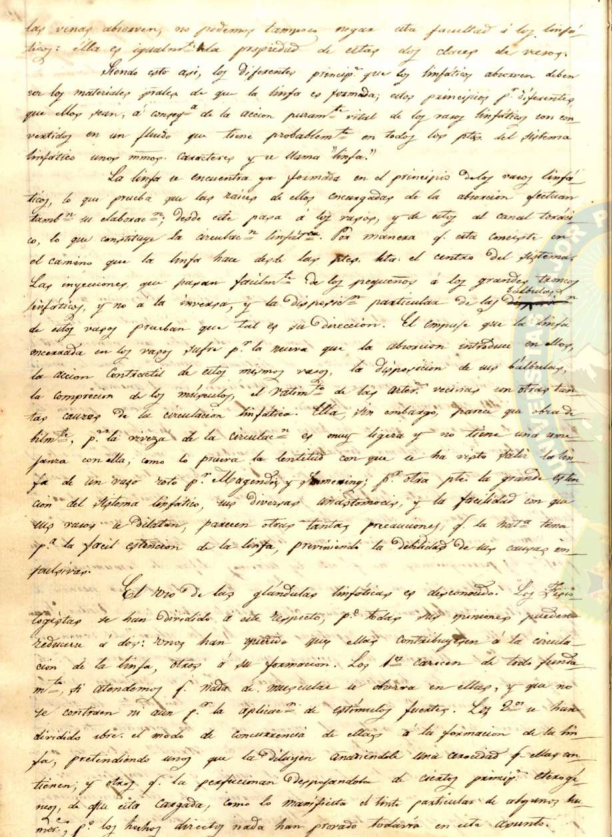 las venas absorven, no podemos tampoco negar esta facultad á los linfá-
ticos: ella es igualm.te la propiedad de estas dos clases de vasos.
Siendo esto asi, los diferentes princip.s que los linfáticos absorven deben
ser los materiales de que la linfa es formada; estos principios p.r diferentes
que ellos sean, á conseq.a de la accion puram.te vital de los vasos linfáticos son con-
vertidos en un fluido que tiene probablem.te en todos los ptos. del sistema
linfático unos mmos. caracteres y se llama "linfa."
La linfa se encuentra ya formada en el principio de los vasos linfá-
ticos, lo que prueba que las raices de ellos encargadas de la absorcion efectuan
tamb.n su elaborac.n; desde este pasa á los vasos, y de estos al canal toraxi-
co, lo que constituye la circulac.n linfática. Por manera q. esta consiste en
el camino que la linfa hace desde las ptes. hta. el centro del sistema.
Las inyecciones que pasan facilm.te de los pequeños á los grandes troncos
linfáticos, y no á la inversa, y la disposic.n particular de las válvulas
de estos vasos prueban que tal es su direccion. El empuje que la linfa
encerrada en los vasos sufre p.r la nueva que la absorcion introduce en ellos,
la accion contractil de estos mismos vasos, la disposicion de sus válvulas,
la compresion de los músculos, el latim.to de las arter.s vecinas son otras tan-
tas causas de la circulacion linfática. Ella, sin embargo, parece que obra de-
bilm.te, p.s la fuerza de la circulac.n es muy ligera y no tiene una
con ella, como lo prueva la lentitud con que se ha visto salir la lin-
fa de un vaso roto p.r Magendie y Soemering; p.r otra pte. la grande esten-
cion del sistema linfático, sus diversas anastomosis, y la facilidad con que
sus vasos se dilatan, parecen otras tantas precauciones, q. la nat.a toma
p.a la facil estencion de la linfa, previniendo la debilidad de sus causas im-
pulsivas.
El uso de las glándulas linfáticas es desconocido. Los Fisio-
logistas se han dividido á este respecto, p.o todas sus opiniones pueden
reducirse á dos: unos han querido que ellas contribuyesen á la circula-
cion de la linfa, otros á su formacion. Los 1.os carecen de todo funda-
m.to, si atendemos q. nada de muscular se observa en ellas, y que no
se contraen ni aun p.r la aplicac.n de estimulos fuertes. Los 2.os se han
dividido sbre. el modo de concurrencia de ellas á la formacion de la lin-
fa, pretendiendo unos que la diluyen anadiendole una cerocidad q. ellas con-
tienen; y otros q. la perfeccionan despojandola de ciertos princip.s eteroge-
neos, de q. esta cargada, como lo manifiesta el tinte particular de algunos
p.o los hechos directos nada han provado todavia en este asunto.